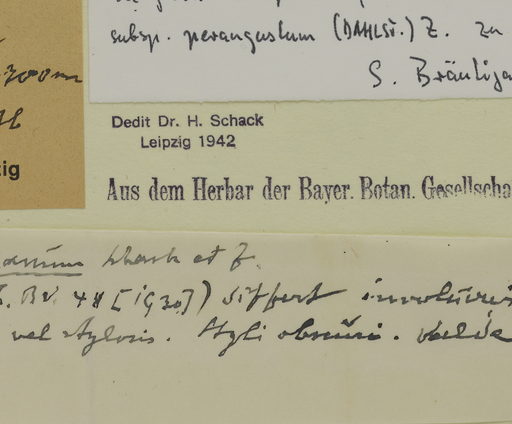 subsp. perangustum (DAHLST.) Z. zu
S. Bräutiga
300m
zig
Dedit Dr. H. Schack
Leipzig 1942
Aus dem Herbar der Bayer. Botan. Gesellscha
Schack et Z.
48 [1930]) differt involucris
vel stylosis. Styli obscuri. Valde